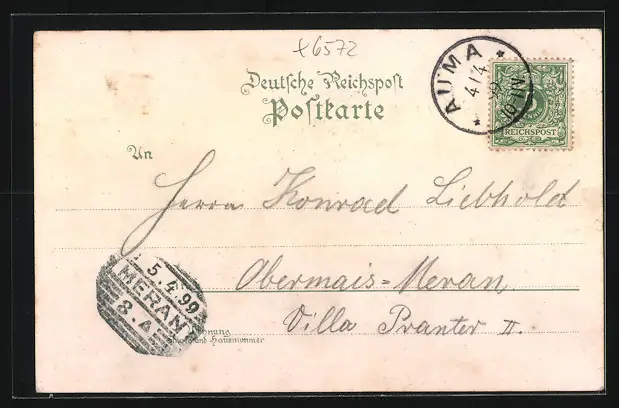 x6572
Deutsche Reichspost
Postkarte
AUMA
4/4
99
REICHSPOST
An
Herrn Konrad Liebhold
Obermais-Meran
Villa Pranter II.
5.4.99
MERAN
8.A
Wohnung
und Hausnummer